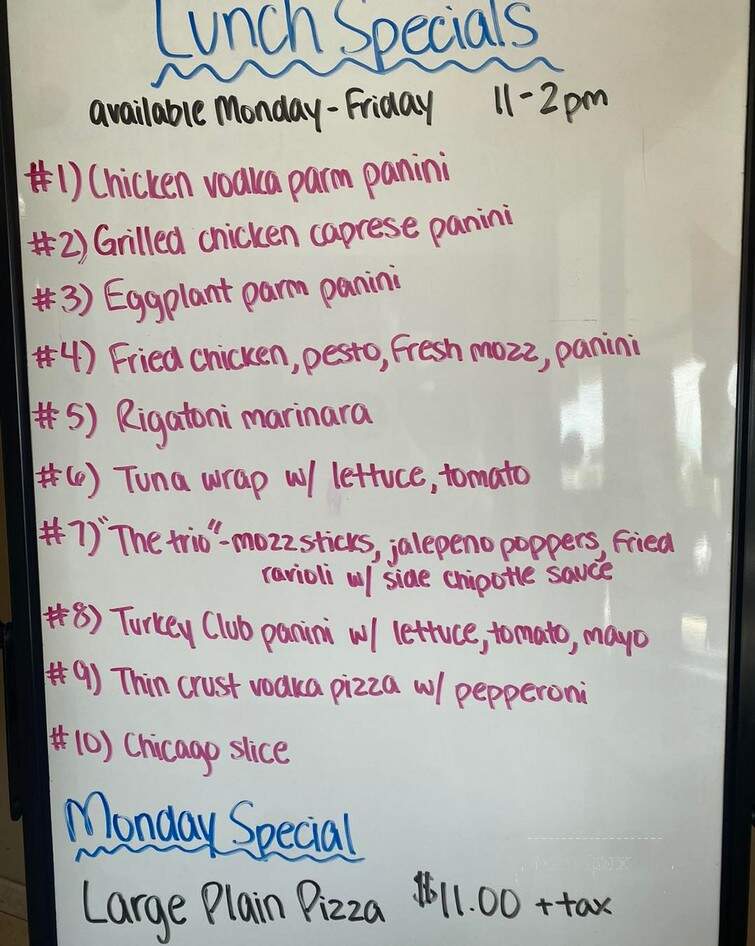 Lunch Specials
available Monday-Friday 11-2pm
#1) Chicken vodka parm panini
#2) Grilled chicken caprese panini
#3) Eggplant parm panini
#4) Fried chicken, pesto, Fresh mozz, panini
#5) Rigatoni marinara
#6) Tuna wrap w/ lettuce, tomato
#7) "The trio"-mozz sticks, jalepeno poppers, Fried
ravioli w/ side chipotle sauce
#8) Turkey Club panini w/ lettuce, tomato, mayo
#9) Thin crust vodka pizza w/ pepperoni
#10) Chicago slice
Monday Special
Large Plain Pizza $11.00 + tax